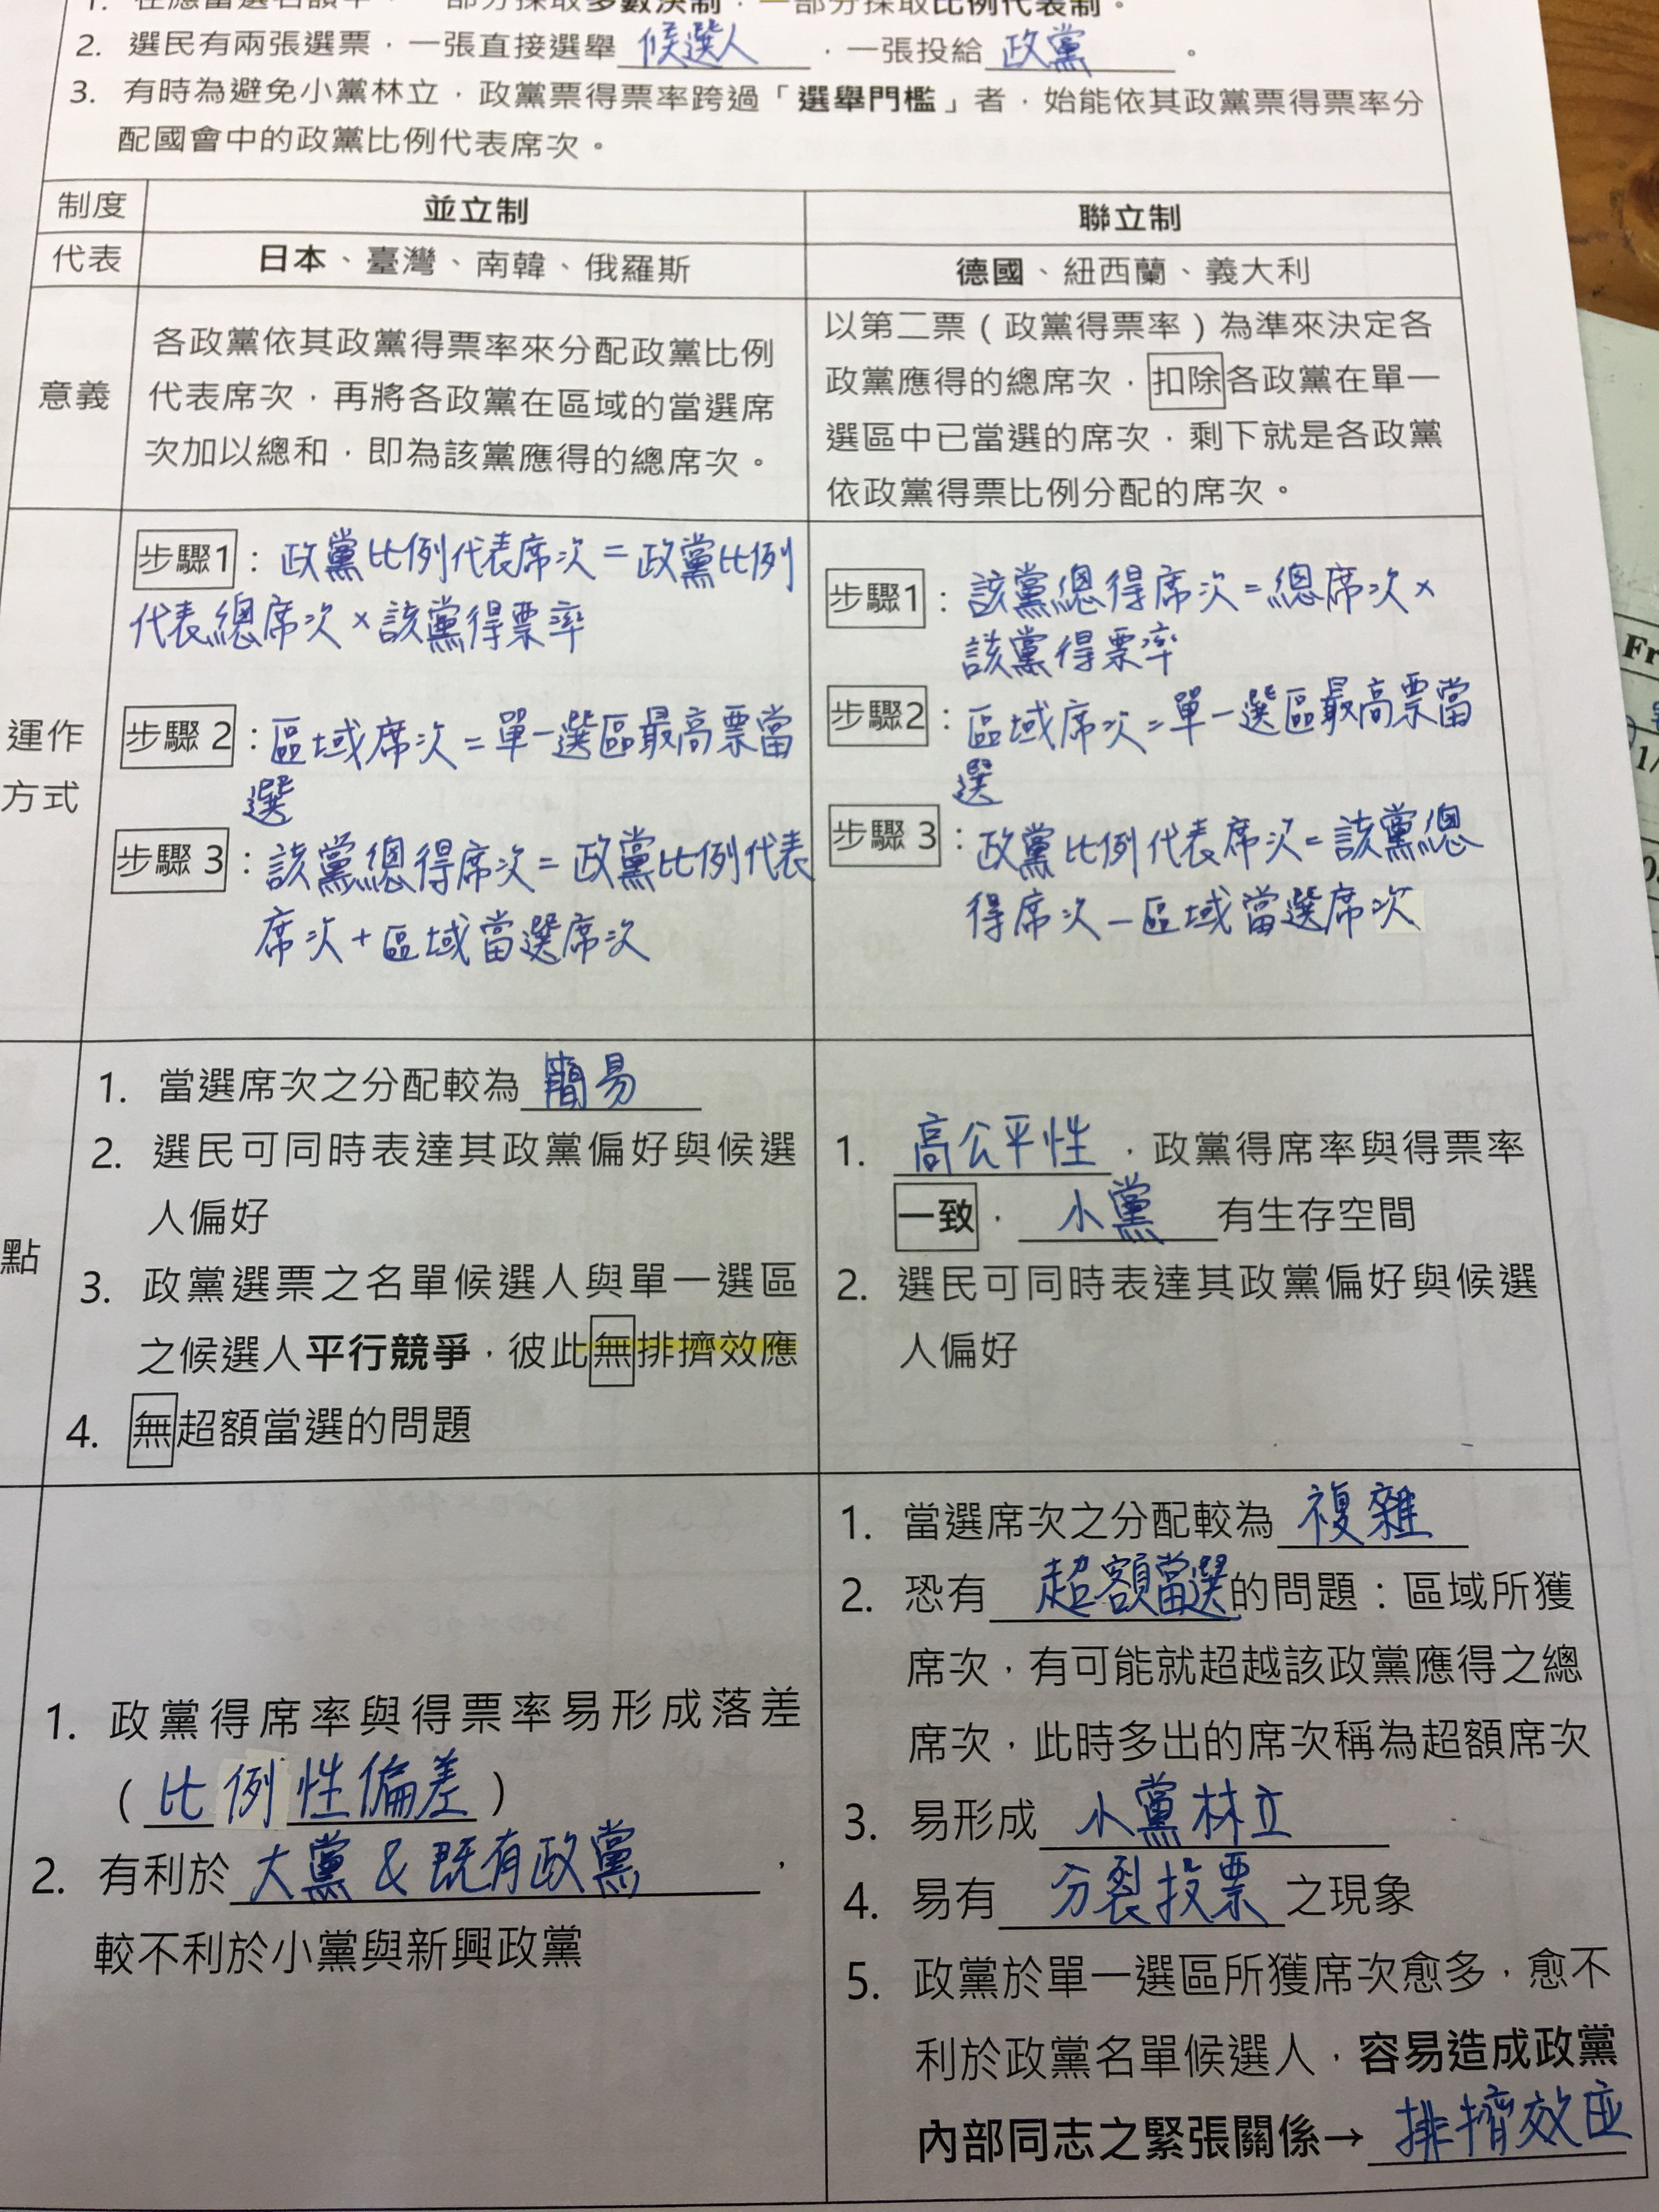 1. 在應當選名額中，一部分採取多數決制，一部分採取比例代表制。
2. 選民有兩張選票，一張直接選舉 候選人 ，一張投給 政黨 。
3. 有時為避免小黨林立，政黨票得票率跨過「選舉門檻」者，始能依其政黨票得票率分
配國會中的政黨比例代表席次。
制度 並立制 聯立制
代表 日本、臺灣、南韓、俄羅斯 德國、紐西蘭、義大利
意義
各政黨依其政黨得票率來分配政黨比例
代表席次，再將各政黨在區域的當選席
次加以總和，即為該黨應得的總席次。
以第二票（政黨得票率）為準來決定各
政黨應得的總席次，扣除各政黨在單一
選區中已當選的席次，剩下就是各政黨
依政黨得票比例分配的席次。
運作
方式
步驟1：政黨比例代表席次=政黨比例
代表總席次×該黨得票率
步驟2：區域席次=單一選區最高票當
選
步驟3：該黨總得席次=政黨比例代表
席次+區域當選席次
步驟1：該黨總得席次=總席次×
該黨得票率
步驟2：區域席次=單一選區最高票當
選
步驟3：政黨比例代表席次=該黨總
得席次-區域當選席次
點
1. 當選席次之分配較為 簡易
2. 選民可同時表達其政黨偏好與候選
人偏好
3. 政黨選票之名單候選人與單一選區
之候選人平行競爭，彼此無排擠效應
4. 無超額當選的問題
1. 高公平性，政黨得席率與得票率
一致，小黨 有生存空間
2. 選民可同時表達其政黨偏好與候選
人偏好
1. 政黨得席率與得票率易形成落差
（比例性偏差）
2. 有利於 大黨&既有政黨 ，
較不利於小黨與新興政黨
1. 當選席次之分配較為 複雜
2. 恐有 超額當選 的問題：區域所獲
席次，有可能就超越該政黨應得之總
席次，此時多出的席次稱為超額席次
3. 易形成 小黨林立
4. 易有 分裂投票 之現象
5. 政黨於單一選區所獲席次愈多，愈不
利於政黨名單候選人，容易造成政黨
內部同志之緊張關係→ 排擠效应
Fr
1/